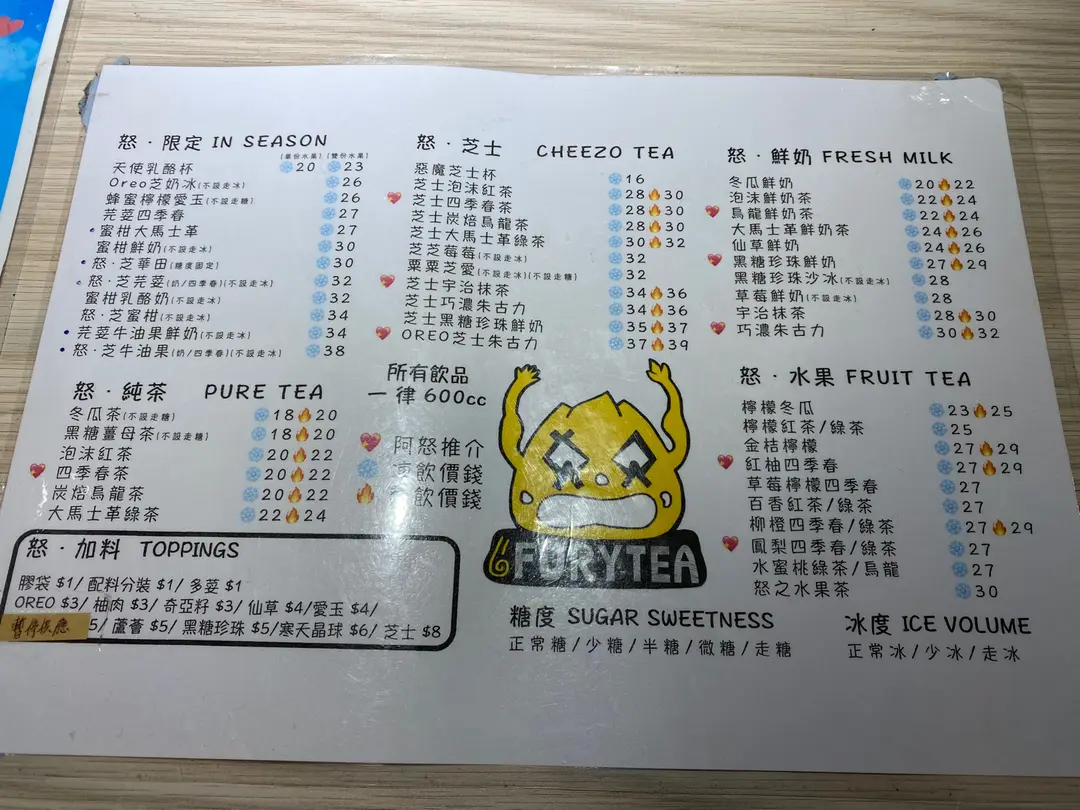 怒·限定 IN SEASON
(單份水果) (雙份水果)
天使乳酪杯 ❄️20 ❄️23
Oreo芝奶冰(不設走冰) ❄️26
蜂蜜檸檬愛玉(不設走糖) ❄️26
芫荽四季春 ❄️27
蜜柑大馬士革 ❄️27
蜜柑鮮奶(不設走冰) ❄️30
怒·芝華田(糖度固定) ❄️30
怒·芝芫荽(奶/四季春)(不設走冰) ❄️32
蜜柑乳酪奶(不設走冰) ❄️32
怒·芝蜜柑(不設走冰) ❄️34
芫荽牛油果鮮奶(不設走冰) ❄️34
怒·芝牛油果(奶/四季春)(不設走冰) ❄️38
怒·芝士 CHEEZO TEA
惡魔芝士杯 ❄️16
💖 芝士泡沫紅茶 ❄️28🔥30
芝士四季春茶 ❄️28🔥30
芝士炭焙烏龍茶 ❄️28🔥30
芝士大馬士革綠茶 ❄️30🔥32
芝芝莓莓(不設走冰) ❄️32
粟粟芝愛(不設走冰)(不設走糖) ❄️32
💖 芝士宇治抹茶 ❄️34🔥36
芝士巧濃朱古力 ❄️34🔥36
芝士黑糖珍珠鮮奶 ❄️35🔥37
💖 OREO芝士朱古力 ❄️37🔥39
怒·鮮奶 FRESH MILK
冬瓜鮮奶 ❄️20🔥22
泡沫鮮奶茶 ❄️22🔥24
💖 烏龍鮮奶茶 ❄️22🔥24
大馬士革鮮奶茶 ❄️24🔥26
仙草鮮奶 ❄️24🔥26
💖 黑糖珍珠鮮奶 ❄️27🔥29
黑糖珍珠沙冰(不設走冰) ❄️28
草莓鮮奶(不設走冰) ❄️28
宇治抹茶 ❄️28🔥30
💖 巧濃朱古力 ❄️30🔥32
怒·純茶 PURE TEA
冬瓜茶(不設走糖) ❄️18🔥20
黑糖薑母茶(不設走糖) ❄️18🔥20
泡沫紅茶 ❄️20🔥22
💖 四季春茶 ❄️20🔥22
炭焙烏龍茶 ❄️20🔥22
大馬士革綠茶 ❄️22🔥24
所有飲品
一律 600cc
💖 阿怒推介
❄️ 飲價錢
🔥 飲價錢
FURYTEA
怒·水果 FRUIT TEA
檸檬冬瓜 ❄️23🔥25
檸檬紅茶/綠茶 ❄️25
金桔檸檬 ❄️27🔥29
💖 紅柚四季春 ❄️27🔥29
草莓檸檬四季春 ❄️27
百香紅茶/綠茶 ❄️27
柳橙四季春/綠茶 ❄️27🔥29
💖 鳳梨四季春/綠茶 ❄️27
水蜜桃綠茶/烏龍 ❄️27
怒之水果茶 ❄️30
怒·加料 TOPPINGS
膠袋 $1/ 配料分裝 $1/ 多荽 $1
OREO $3/ 柚肉 $3/ 奇亞籽 $3/ 仙草 $4/愛玉 $4/
暫停供應 5/ 蘆薈 $5/ 黑糖珍珠 $5/寒天晶球 $6/ 芝士 $8
糖度 SUGAR SWEETNESS
正常糖/少糖/半糖/微糖/走糖
冰度 ICE VOLUME
正常冰/少冰/走冰